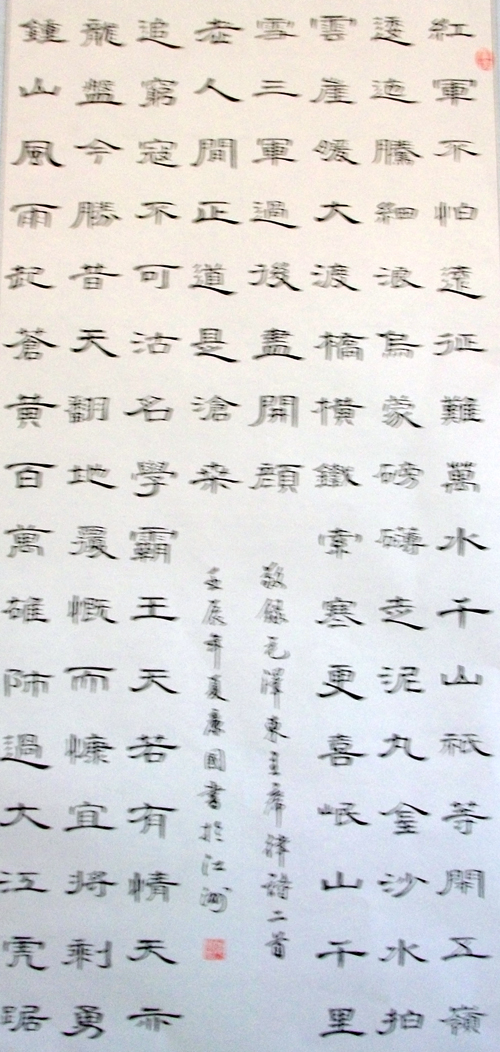 紅軍不怕遠征難萬水千山衹等閑五嶺
逶迤騰細浪烏蒙磅礴走泥丸金沙水拍
雲崖暖大渡橋橫鐵索寒更喜岷山千里
雪三軍過後盡開顏
鍾山風雨起蒼黃百萬雄師過大江虎踞
龍盤今勝昔天翻地覆慨而慷宜將剩勇
追窮寇不可沽名學霸王天若有情天亦
老人間正道是滄桒
敬錄毛澤東主席律詩二首
壬辰年夏康國書於江洲